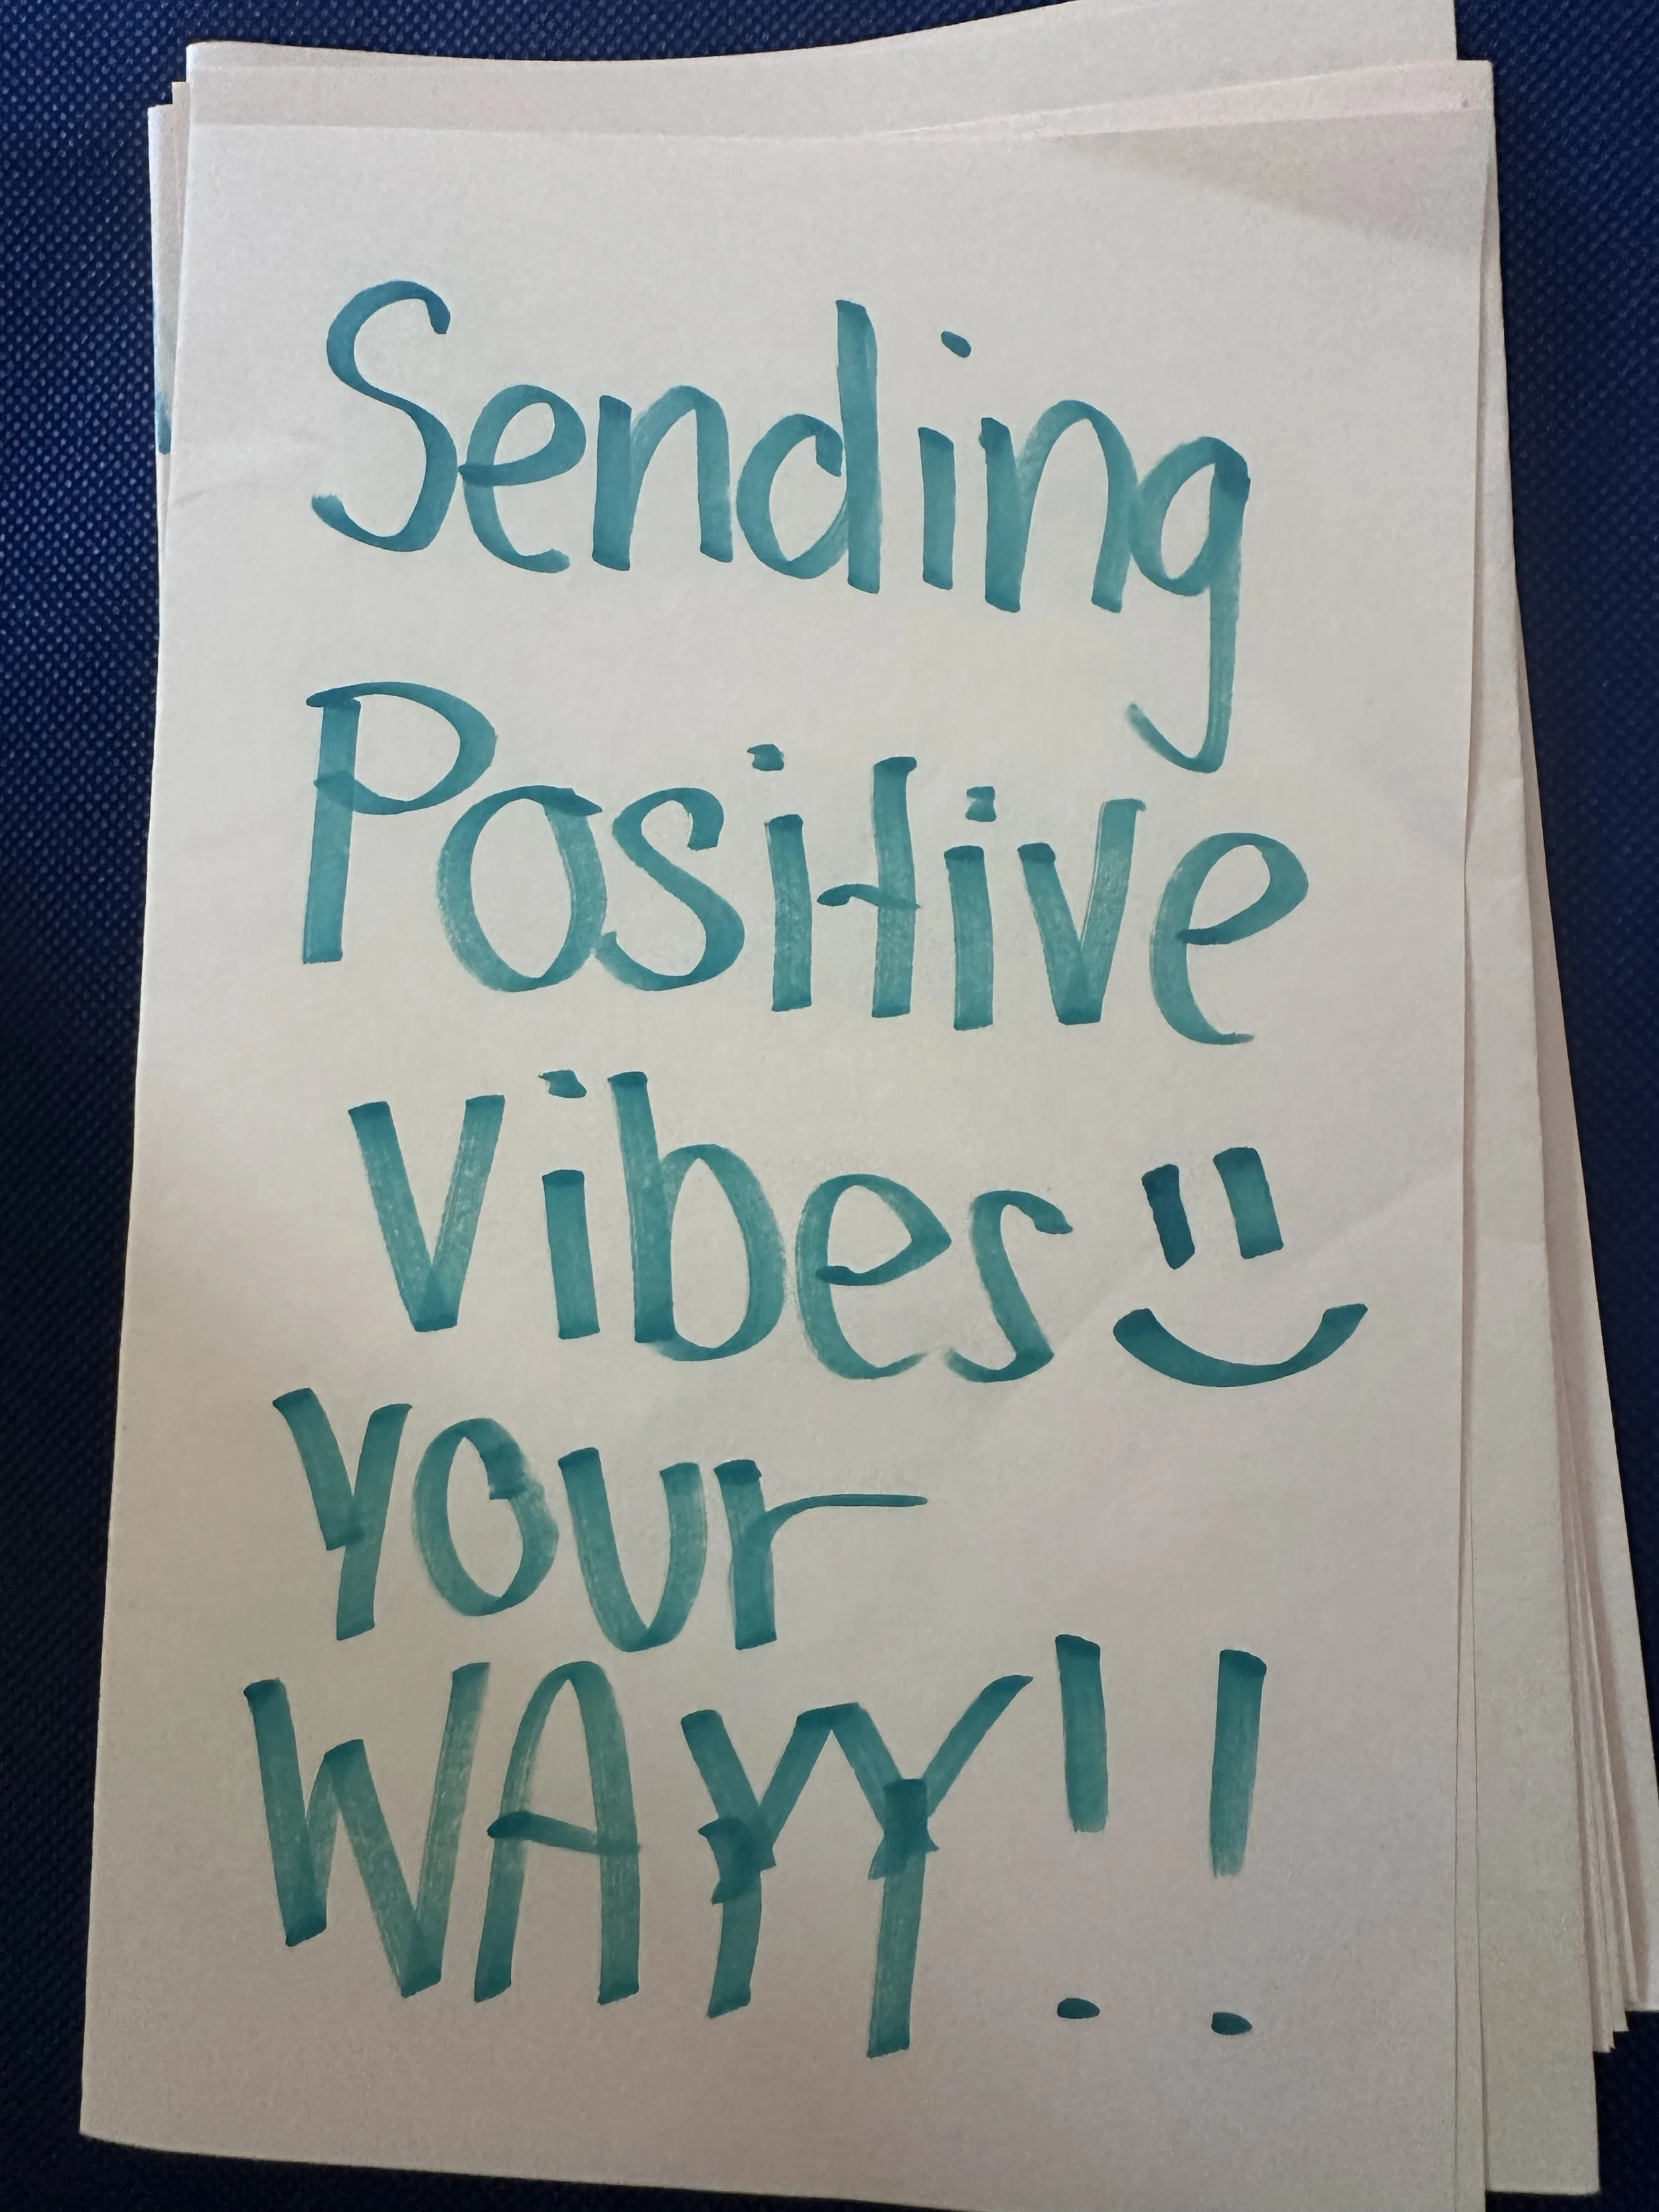 Sending
Positive
Vibes
Your
WAYY!!